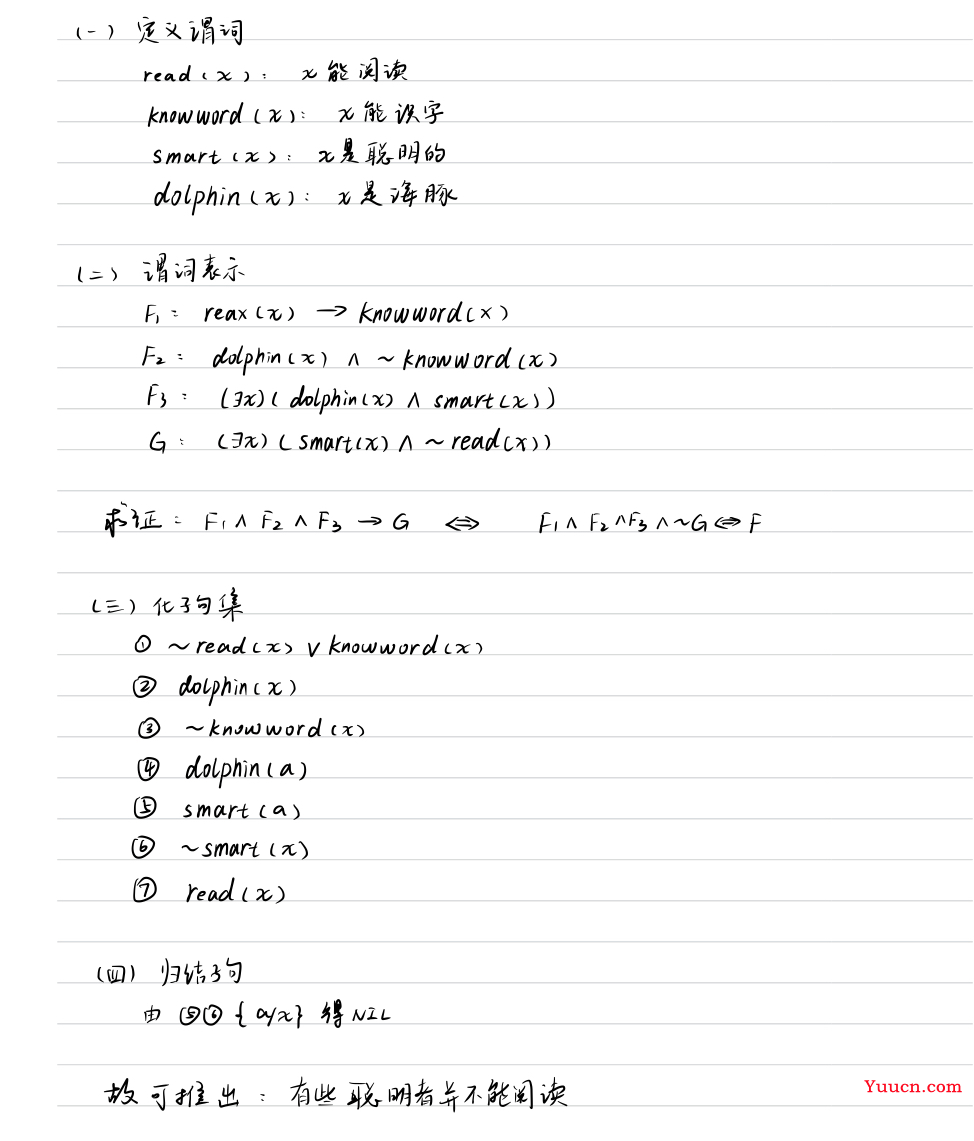 (一) 定义谓词
read(x): x能阅读
knowword(x): x能识字
smart(x): x是聪明的
dolphin(x): x是海豚
(二) 谓词表示
F₁: reax(x) → knowword(x)
F₂: dolphin(x) ∧ ~knowword(x)
F₃: (∃x)(dolphin(x) ∧ smart(x))
G: (∃x)(smart(x) ∧ ~read(x))
求证: F₁ ∧ F₂ ∧ F₃ → G ⇔ F₁ ∧ F₂ ∧ F₃ ∧ ~G ⇔ F
(三) 化子句集
① ~read(x) ∨ knowword(x)
② dolphin(x)
③ ~knowword(x)
④ dolphin(a)
⑤ smart(a)
⑥ ~smart(x)
⑦ read(x)
(四) 归结子句
由 ⑤⑥ {a/x} 得 NIL
故可推出: 有些聪明者并不能阅读
Yuucn.com